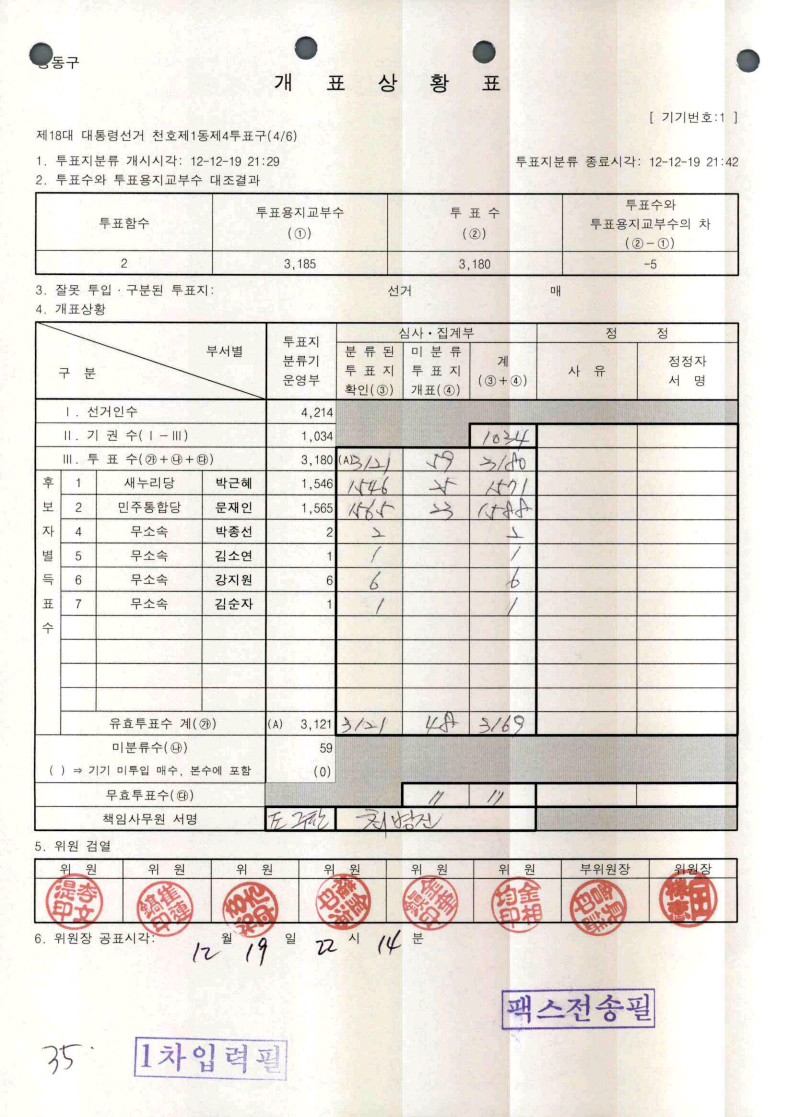 강동구
개 표 상 황 표
[ 기기번호:1 ]
제18대 대통령선거 천호제1동제4투표구(4/6)
1. 투표지분류 개시시각: 12-12-19 21:29 투표지분류 종료시각: 12-12-19 21:42
2. 투표수와 투표용지교부수 대조결과
투표함수 투표용지교부수 (①) 투 표 수 (②) 투표수와 투표용지교부수의 차 (②-①)
2 3,185 3,180 -5
3. 잘못 투입·구분된 투표지: 선거 매
4. 개표상황
구 분 부서별 투표지 분류기 운영부 심사·집계부 정 정
분 류 된 투 표 지 확인(③) 미 분 류 투 표 지 개표(④) 계 (③+④) 사 유 정정자 서 명
Ⅰ. 선거인수 4,214
Ⅱ. 기 권 수(Ⅰ-Ⅲ) 1,034 1034
Ⅲ. 투 표 수(㉮+㉯+㉰) 3,180 (A)3121 59 3180
후보자별득표수
1 새누리당 박근혜 1,546 1546 25 1571
2 민주통합당 문재인 1,565 1565 23 1588
4 무소속 박종선 2 2 2
5 무소속 김소연 1 1 1
6 무소속 강지원 6 6 6
7 무소속 김순자 1 1 1
유효투표수 계(㉮) (A) 3,121 3121 48 3169
미분류수(㉯) 59
( ) ⇒ 기기 미투입 매수, 본수에 포함 (0)
무효투표수(㉰) 11 11
책임사무원 서명
5. 위원 검열
위 원 위 원 위 원 위 원 위 원 위 원 부위원장 위원장
6. 위원장 공표시각: 12 월 19 일 22 시 14 분
팩스전송필
35.
1차입력필